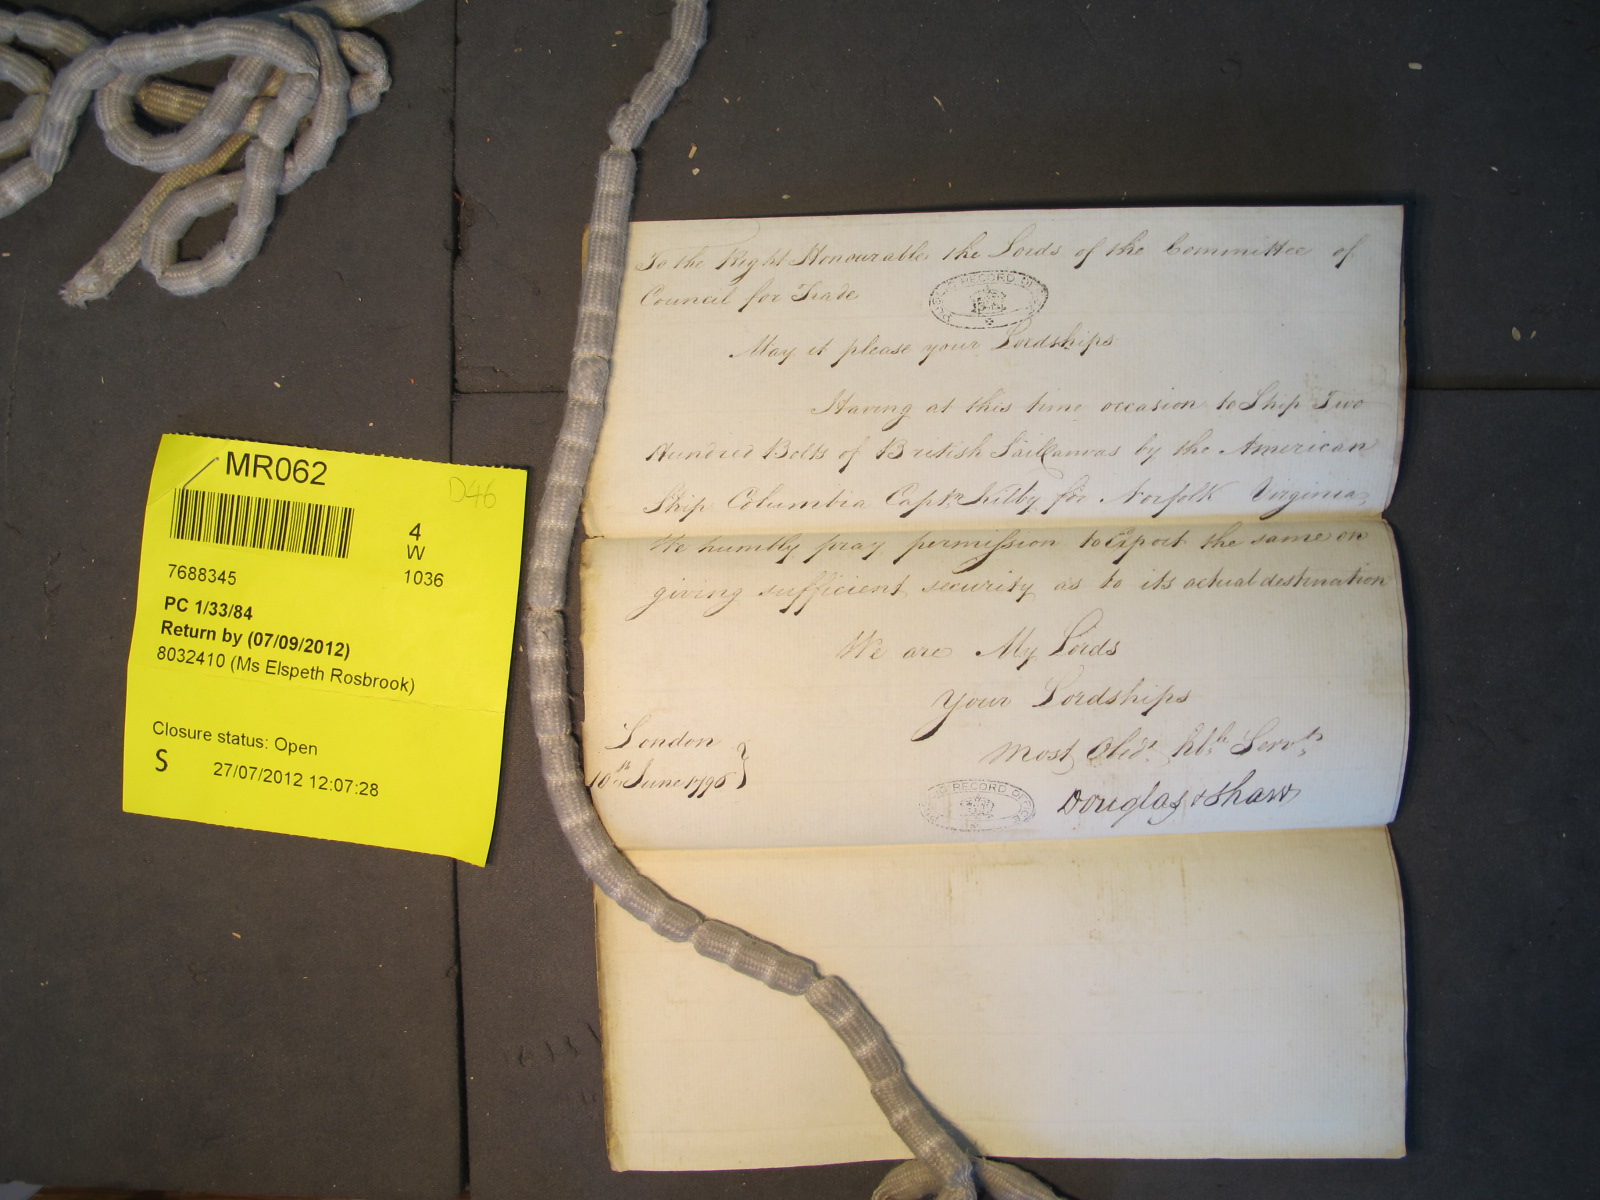 MR062
D46
4
W
1036
7688345
PC 1/33/84
Return by (07/09/2012)
8032410 (Ms Elspeth Rosbrook)
Closure status: Open
S 27/07/2012 12:07:28
To the Right Honourable the Lords of the Committee of
Council for Trade
PUBLIC RECORD OFFICE
May it please your Lordships
Having at this time occasion to Ship Two
Hundred Bolts of British Sail Canvas by the American
Ship Columbia Captn Kilby for Norfolk Virginia,
We humbly pray permission to Export the same on
giving sufficient security as to its actual destination
We are My Lords
Your Lordships
Most Obedt hble Servts
London
10th June 1796
Douglas & Shaw
PUBLIC RECORD OFFICE